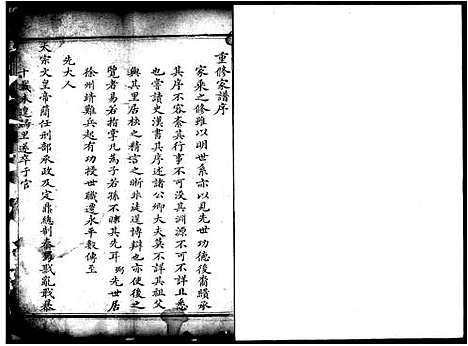 重修家譜序
家乘之修雖以明世系亦以見先世功德後裔纘承
其序不容紊其行事不可沒其淵源不可不詳且悉
也嘗讀史漢書其序述諸公卿大夫莫不詳其祖父
與其里居核之精言之晰非徒逞博辯也亦使後之
覽者易若指掌凡為子若孫不昧其先耳 先世居
徐州靖難兵起有功授世職遷永平數傳至
先大人
太宗文皇帝簡任刑部承政及定鼎總制 戡亂戢暴
十載未遑 里遂卒于官